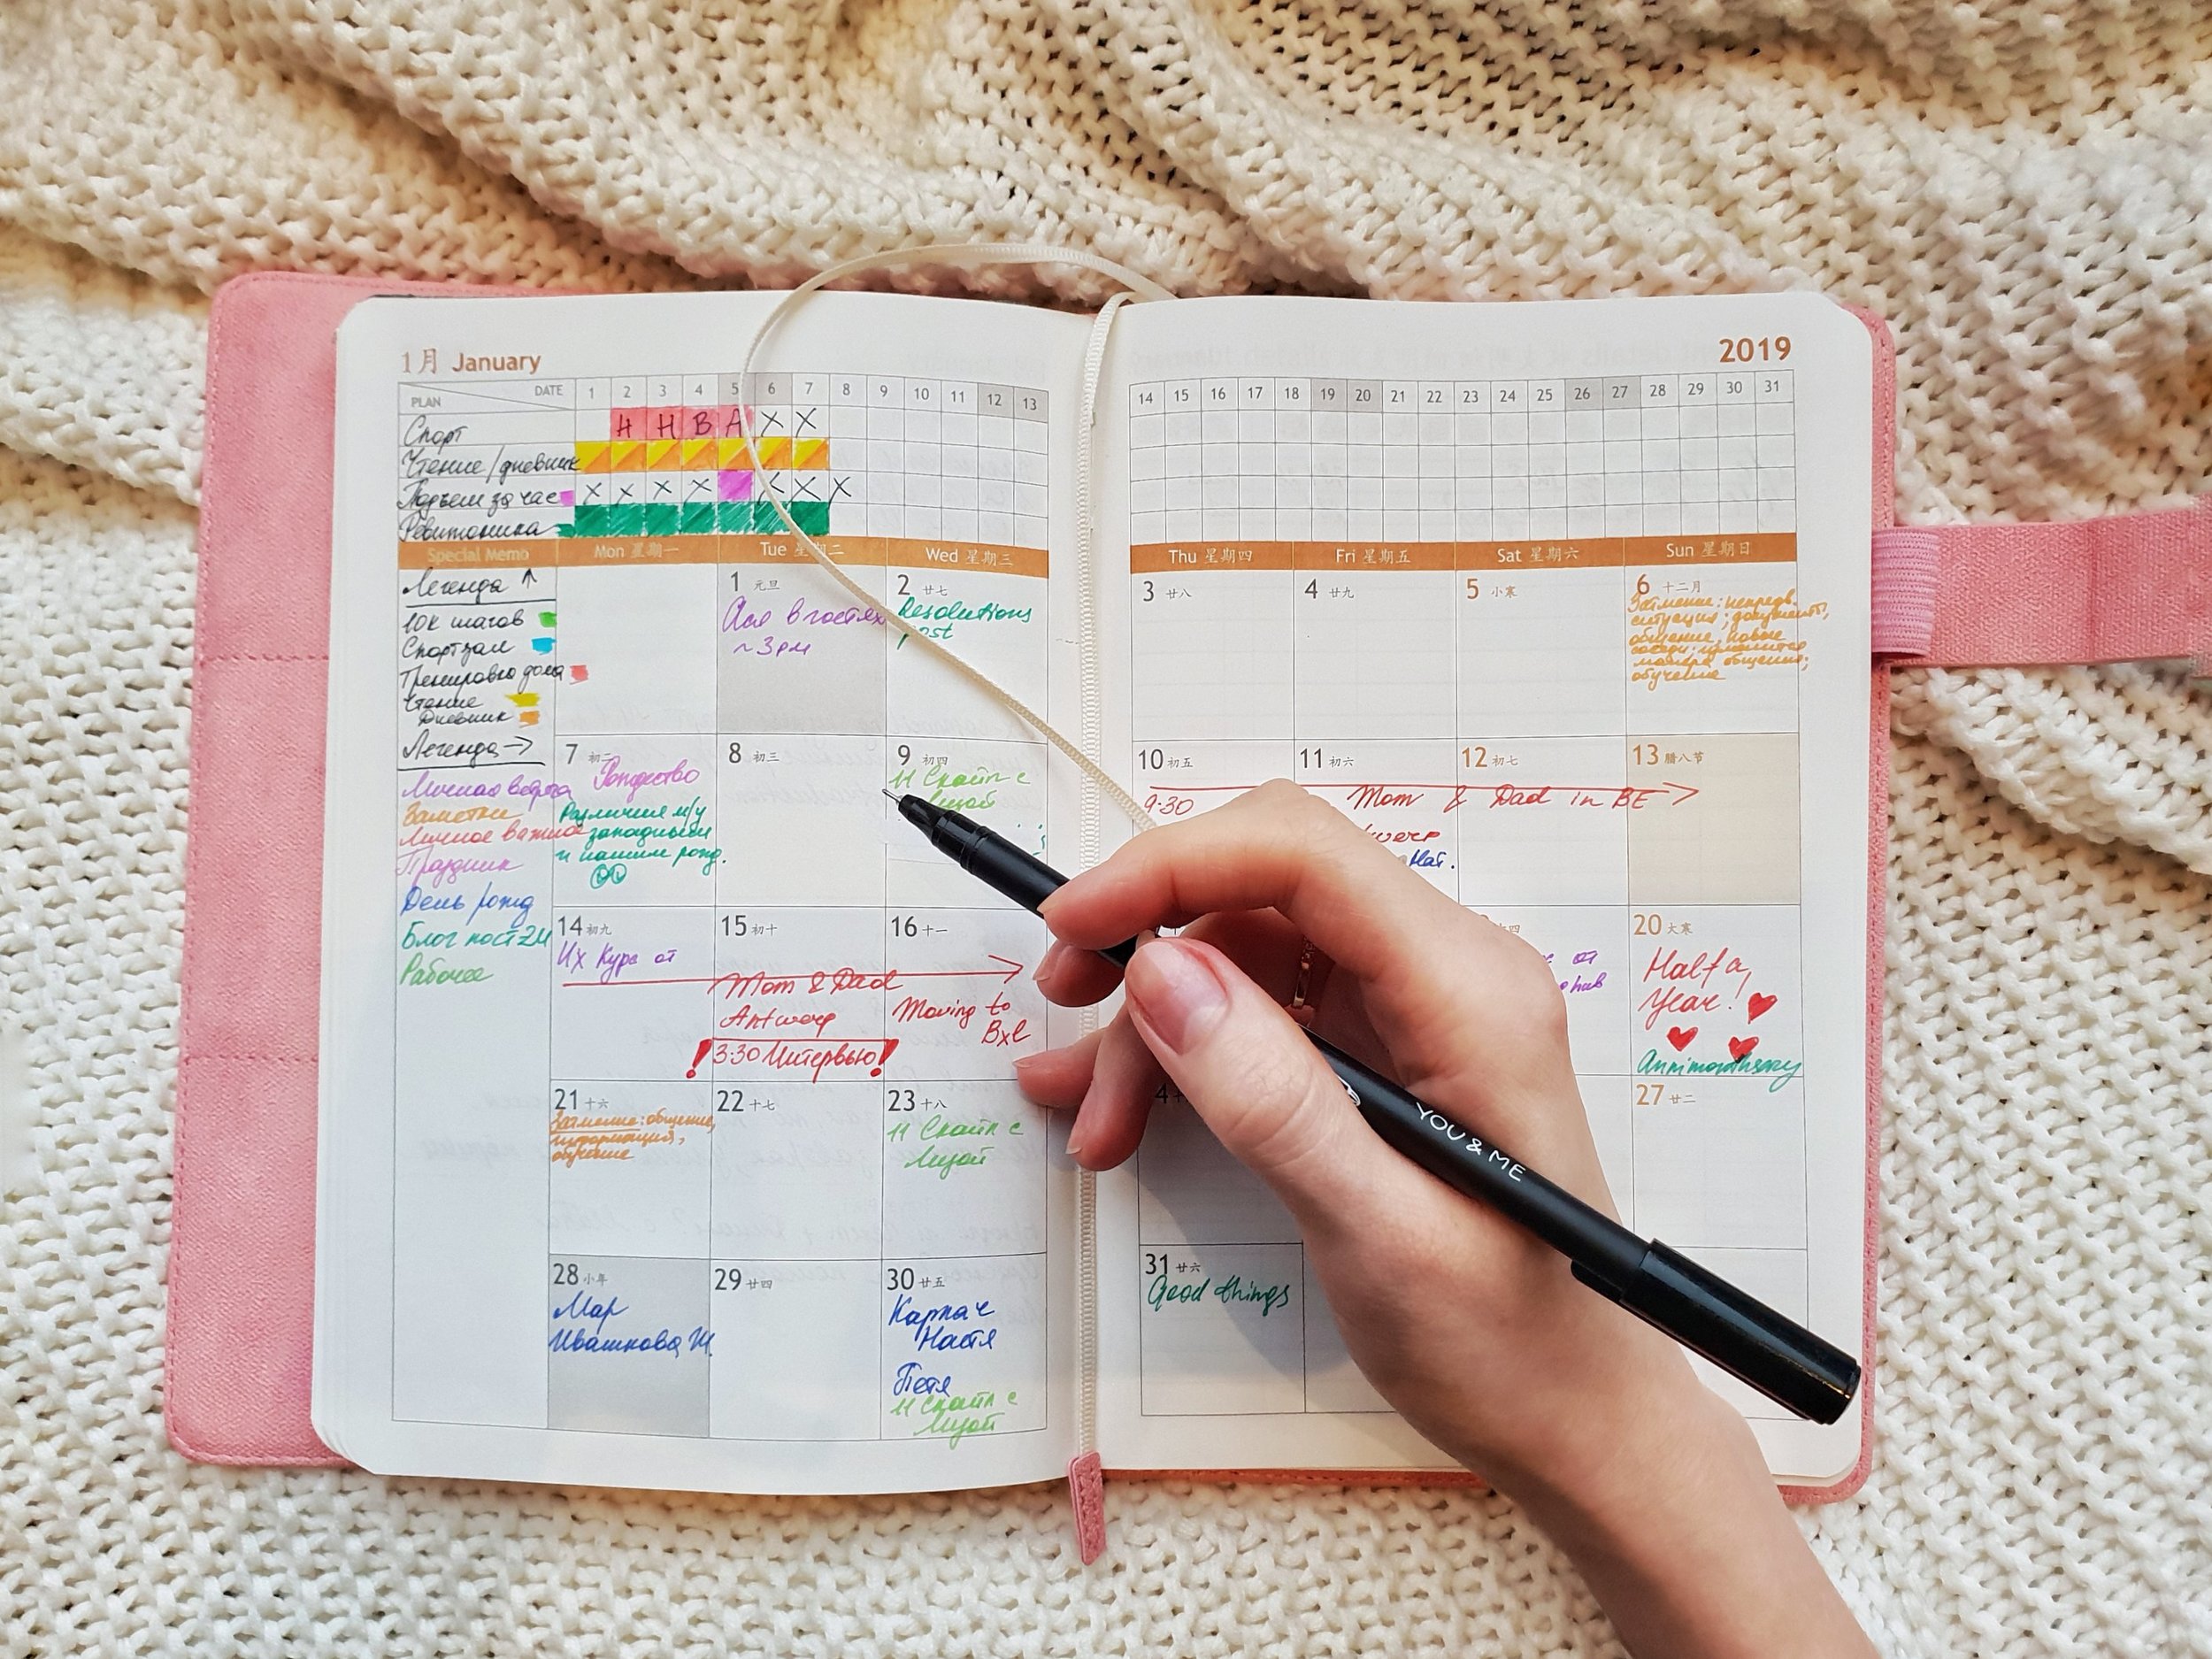 1月 January
2019
DATE 1 2 3 4 5 6 7 8 9 10 11 12 13
14 15 16 17 18 19 20 21 22 23 24 25 26 27 28 29 30 31
PLAN
Спорт Н Н В А X X
Чтение/дневник
Подъем за час X X X X X X X
Ревитоника
Special Memo Mon 星期一 Tue 星期二 Wed 星期三
Thu 星期四 Fri 星期五 Sat 星期六 Sun 星期日
Легенда ↑
10К шагов
Спортзал
Тренировка дома
Чтение
Дневник
Легенда →
Личная встреча
Заметки
Личное важное
Праздник
День рожд
Блог пост ZM
Рабочее
1 元旦
Ася в гостях
~3pm
2 廿七
Resolutions
post
3 廿八
4 廿九
5 小寒
6 十二月
Затмение: непредв.
ситуация; документы,
общение, новые
общение;
обучение
7 初二
Рождество
Различия м/у
западным
и нашим рожд.
8 初三
9 初四
11 Скайп с
Лизой
10 初五
9:30
11 初六
Mom & Dad in BE
Нат.
12 初七
13 腊八节
14 初九
Их Курс от
15 初十
Mom & Dad
Antwerp
! 3:30 Интервью!
16 十一
Moving to
Bxl
от
20 大寒
Half a
Year!
Annimonthsary
21 十六
Затмение: общение,
информация,
обучение
22 十七
23 十八
11 Скайп с
Лизой
27 廿二
28 小年
Мар
Ивашкова Ж.
29 廿四
30 廿五
Карпач
Настя
Петя
11 Скайп с
Лизой
31 廿六
Good things
YOU & ME